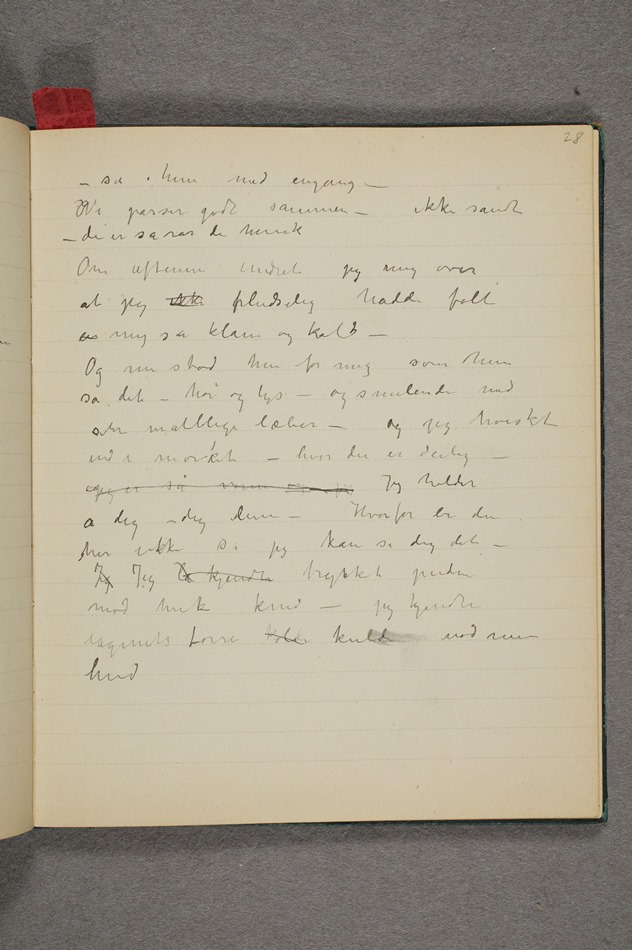 28
– sa hun med engang –
Vi passer godt sammen – ikke sandt
– di er sa rar de henrik
Om aftenen undret jeg mig over
at jeg ikke pludselig hadde følt
mig sa klam og kold –
Og nu stod hun for mig som hun
sa det – høi og lys – og smilende med
matllige læber – og jeg hvisket
ud i mørket – hvor du er deilig –
jeg er så Jeg holder
a dig – dig Den – Hvorfor er du
her ikke sa jeg kan se dig det –
Jeg Jeg kjendte trykket puden
mod mit kind – jeg kjendte
tørre kulde mod min
hud